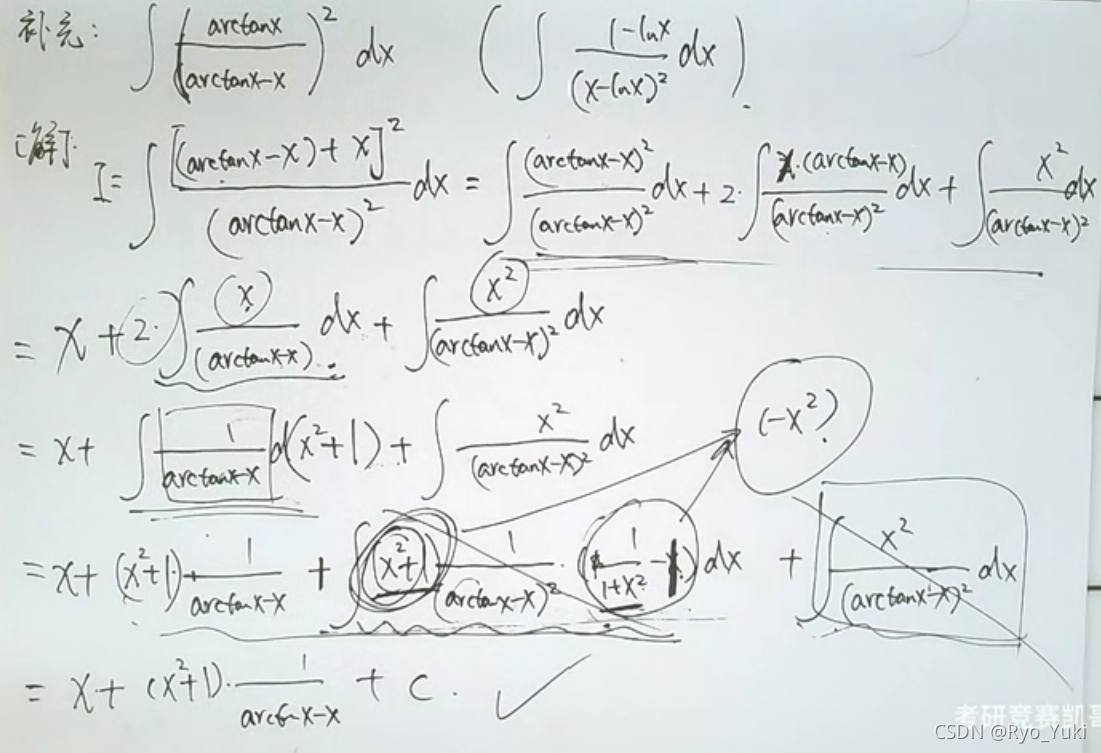 补充: ∫ (arctanx / (arctanx-x))² dx ( ∫ (1-lnx) / (x-lnx)² dx ).
[解]. I = ∫ [(arctanx-x)+x]² / (arctanx-x)² dx = ∫ (arctanx-x)² / (arctanx-x)² dx + 2·∫ x·(arctanx-x) / (arctanx-x)² dx + ∫ x² / (arctanx-x)² dx
= x + 2·∫ x / (arctanx-x) dx + ∫ x² / (arctanx-x)² dx
= x + ∫ 1 / (arctanx-x) d(x²+1) + ∫ x² / (arctanx-x)² dx (-x²)?
= x + (x²+1)· 1 / (arctanx-x) + ∫ (x²+1) 1 / (arctanx-x)² · (1 / (1+x²) - 1) dx + ∫ x² / (arctanx-x)² dx
= x + (x²+1)· 1 / (arctanx-x) + C. ✓
考研竞赛凯哥
CSDN @Ryo_Yuki